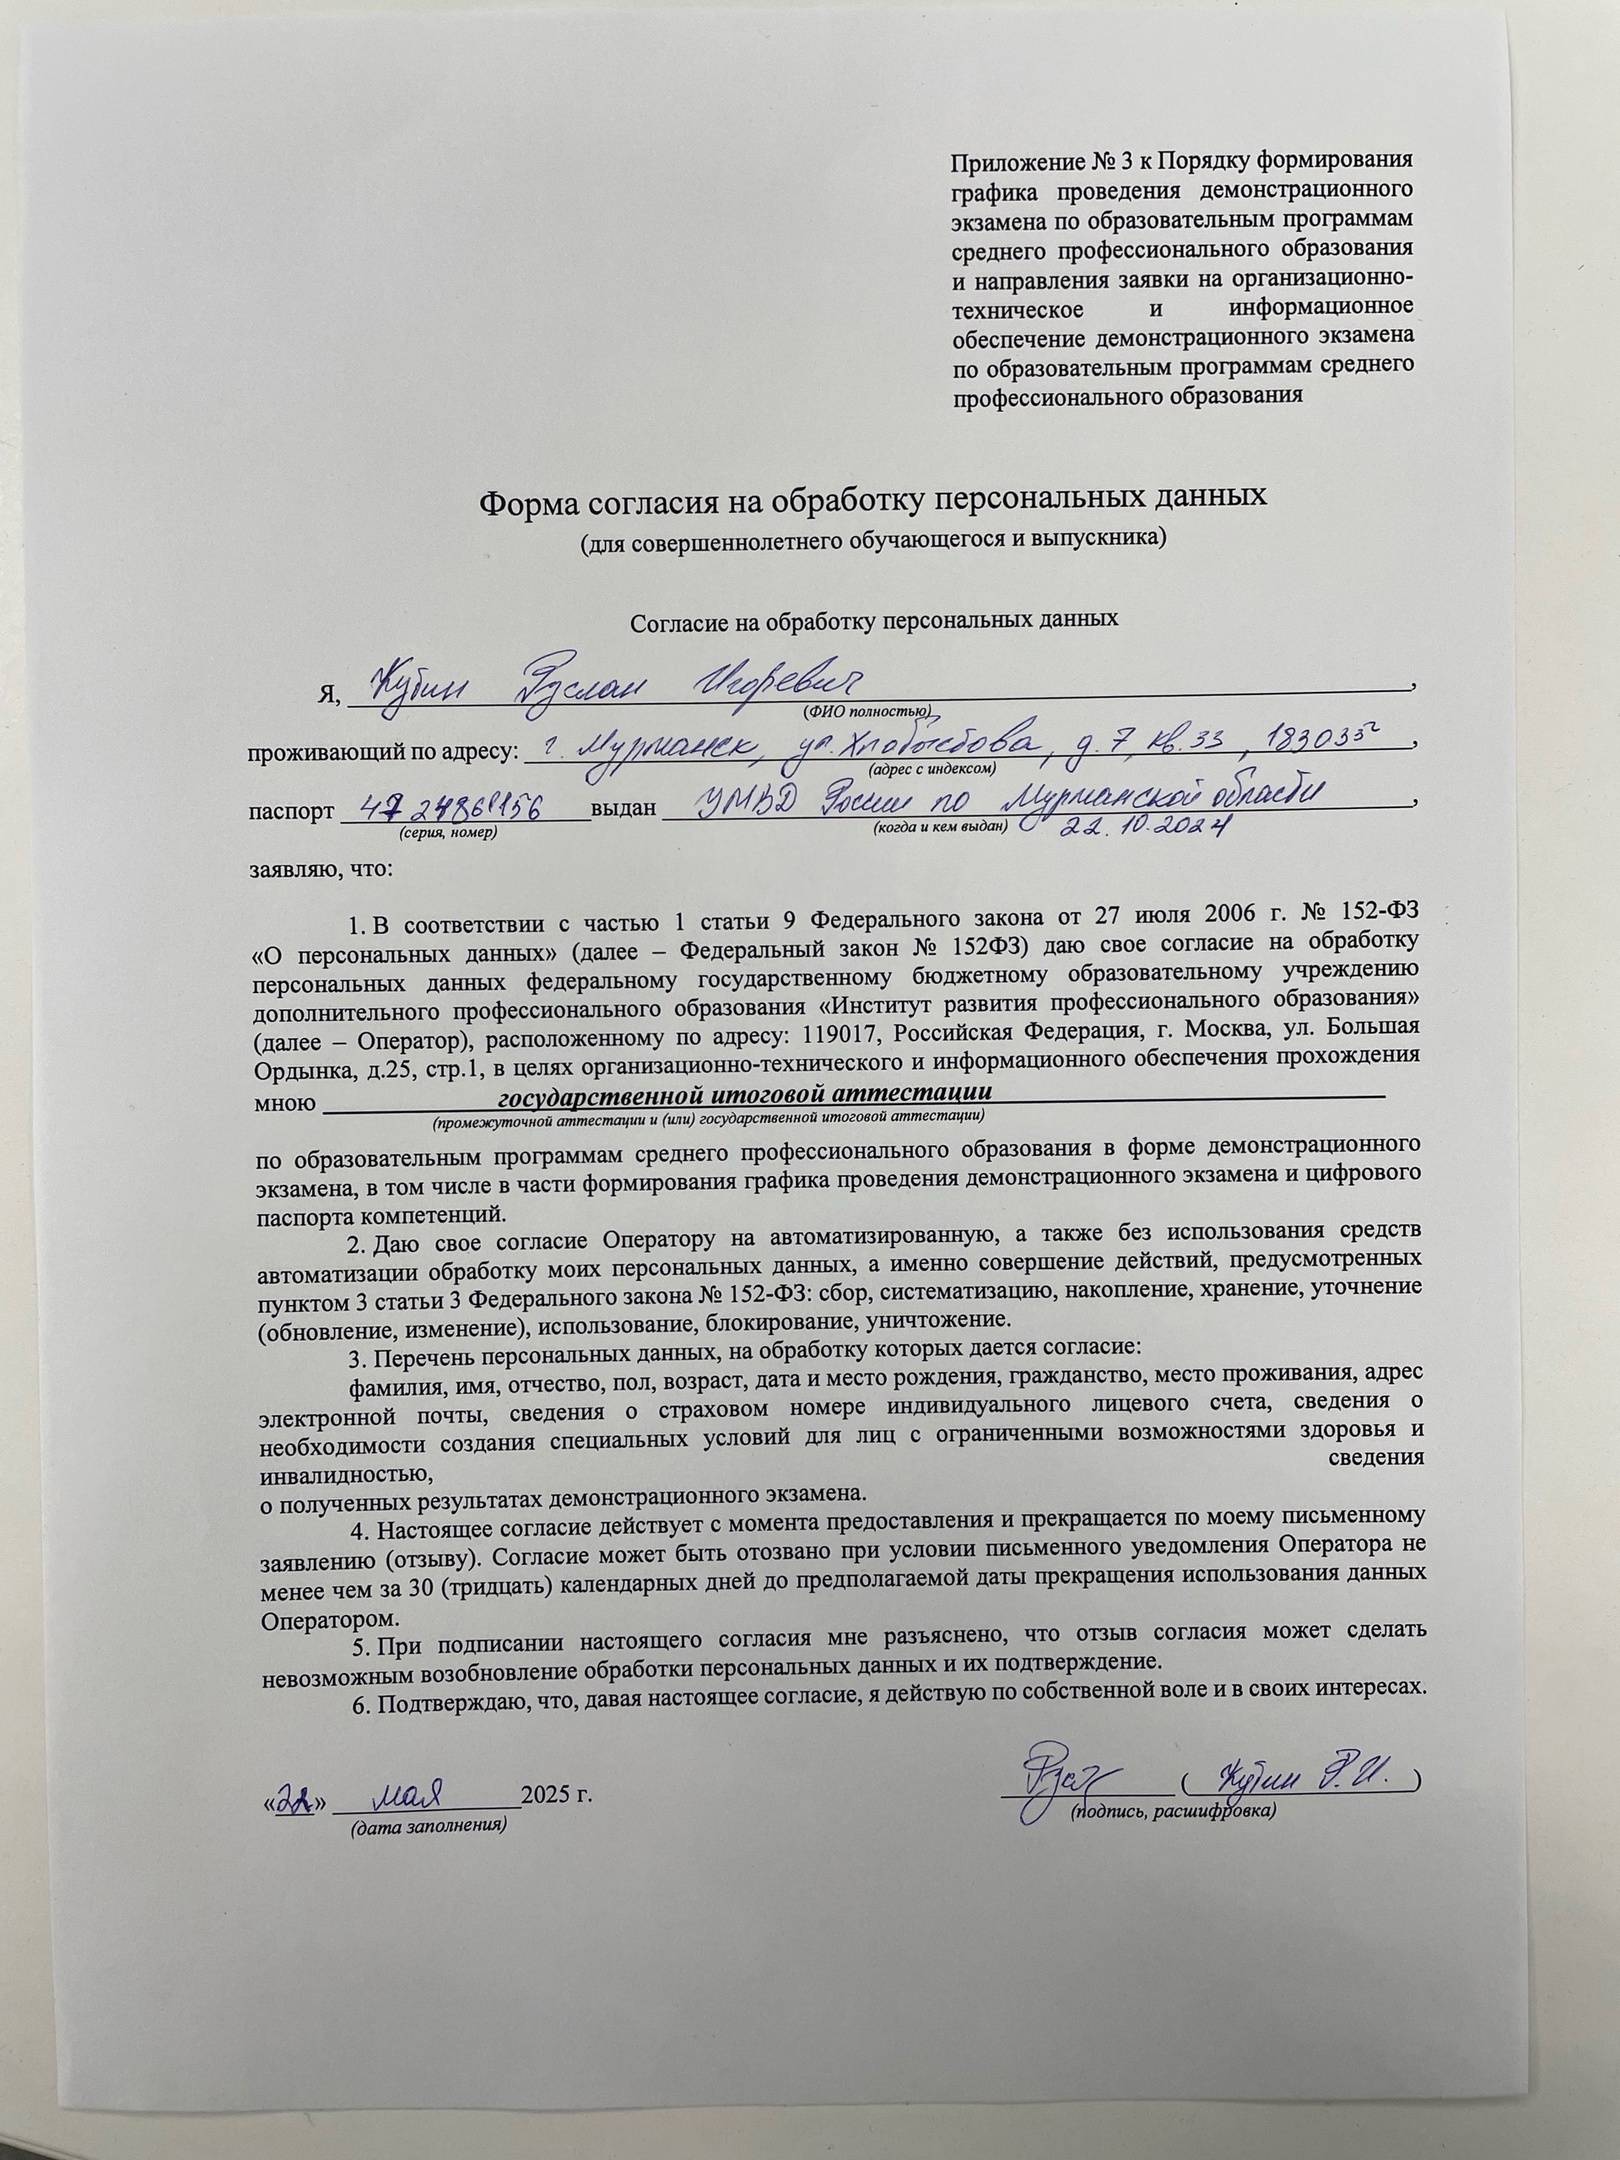 Приложение № 3 к Порядку формирования
графика проведения демонстрационного
экзамена по образовательным программам
среднего профессионального образования
и направления заявки на организационно-
техническое и информационное
обеспечение демонстрационного экзамена
по образовательным программам среднего
профессионального образования
Форма согласия на обработку персональных данных
(для совершеннолетнего обучающегося и выпускника)
Согласие на обработку персональных данных
Я, Кубин Руслан Игоревич,
(ФИО полностью)
проживающий по адресу: г. Мурманск, ул. д. 7, кв. 33,
(адрес с индексом)
паспорт выдан УМВД России по Мурманской области,
(серия, номер) (когда и кем выдан) 22.10.2024
заявляю, что:
1. В соответствии с частью 1 статьи 9 Федерального закона от 27 июля 2006 г. № 152-ФЗ
«О персональных данных» (далее – Федеральный закон № 152ФЗ) даю свое согласие на обработку
персональных данных федеральному государственному бюджетному образовательному учреждению
дополнительного профессионального образования «Институт развития профессионального образования»
(далее – Оператор), расположенному по адресу: 119017, Российская Федерация, г. Москва, ул. Большая
Ордынка, д.25, стр.1, в целях организационно-технического и информационного обеспечения прохождения
мною государственной итоговой аттестации
(промежуточной аттестации и (или) государственной итоговой аттестации)
по образовательным программам среднего профессионального образования в форме демонстрационного
экзамена, в том числе в части формирования графика проведения демонстрационного экзамена и цифрового
паспорта компетенций.
2. Даю свое согласие Оператору на автоматизированную, а также без использования средств
автоматизации обработку моих персональных данных, а именно совершение действий, предусмотренных
пунктом 3 статьи 3 Федерального закона № 152-ФЗ: сбор, систематизацию, накопление, хранение, уточнение
(обновление, изменение), использование, блокирование, уничтожение.
3. Перечень персональных данных, на обработку которых дается согласие:
фамилия, имя, отчество, пол, возраст, дата и место рождения, гражданство, место проживания, адрес
электронной почты, сведения о страховом номере индивидуального лицевого счета, сведения о
необходимости создания специальных условий для лиц с ограниченными возможностями здоровья и
инвалидностью, сведения
о полученных результатах демонстрационного экзамена.
4. Настоящее согласие действует с момента предоставления и прекращается по моему письменному
заявлению (отзыву). Согласие может быть отозвано при условии письменного уведомления Оператора не
менее чем за 30 (тридцать) календарных дней до предполагаемой даты прекращения использования данных
Оператором.
5. При подписании настоящего согласия мне разъяснено, что отзыв согласия может сделать
невозможным возобновление обработки персональных данных и их подтверждение.
6. Подтверждаю, что, давая настоящее согласие, я действую по собственной воле и в своих интересах.
«22» мая 2025 г. (Кубин Р.И.)
(дата заполнения) (подпись, расшифровка)